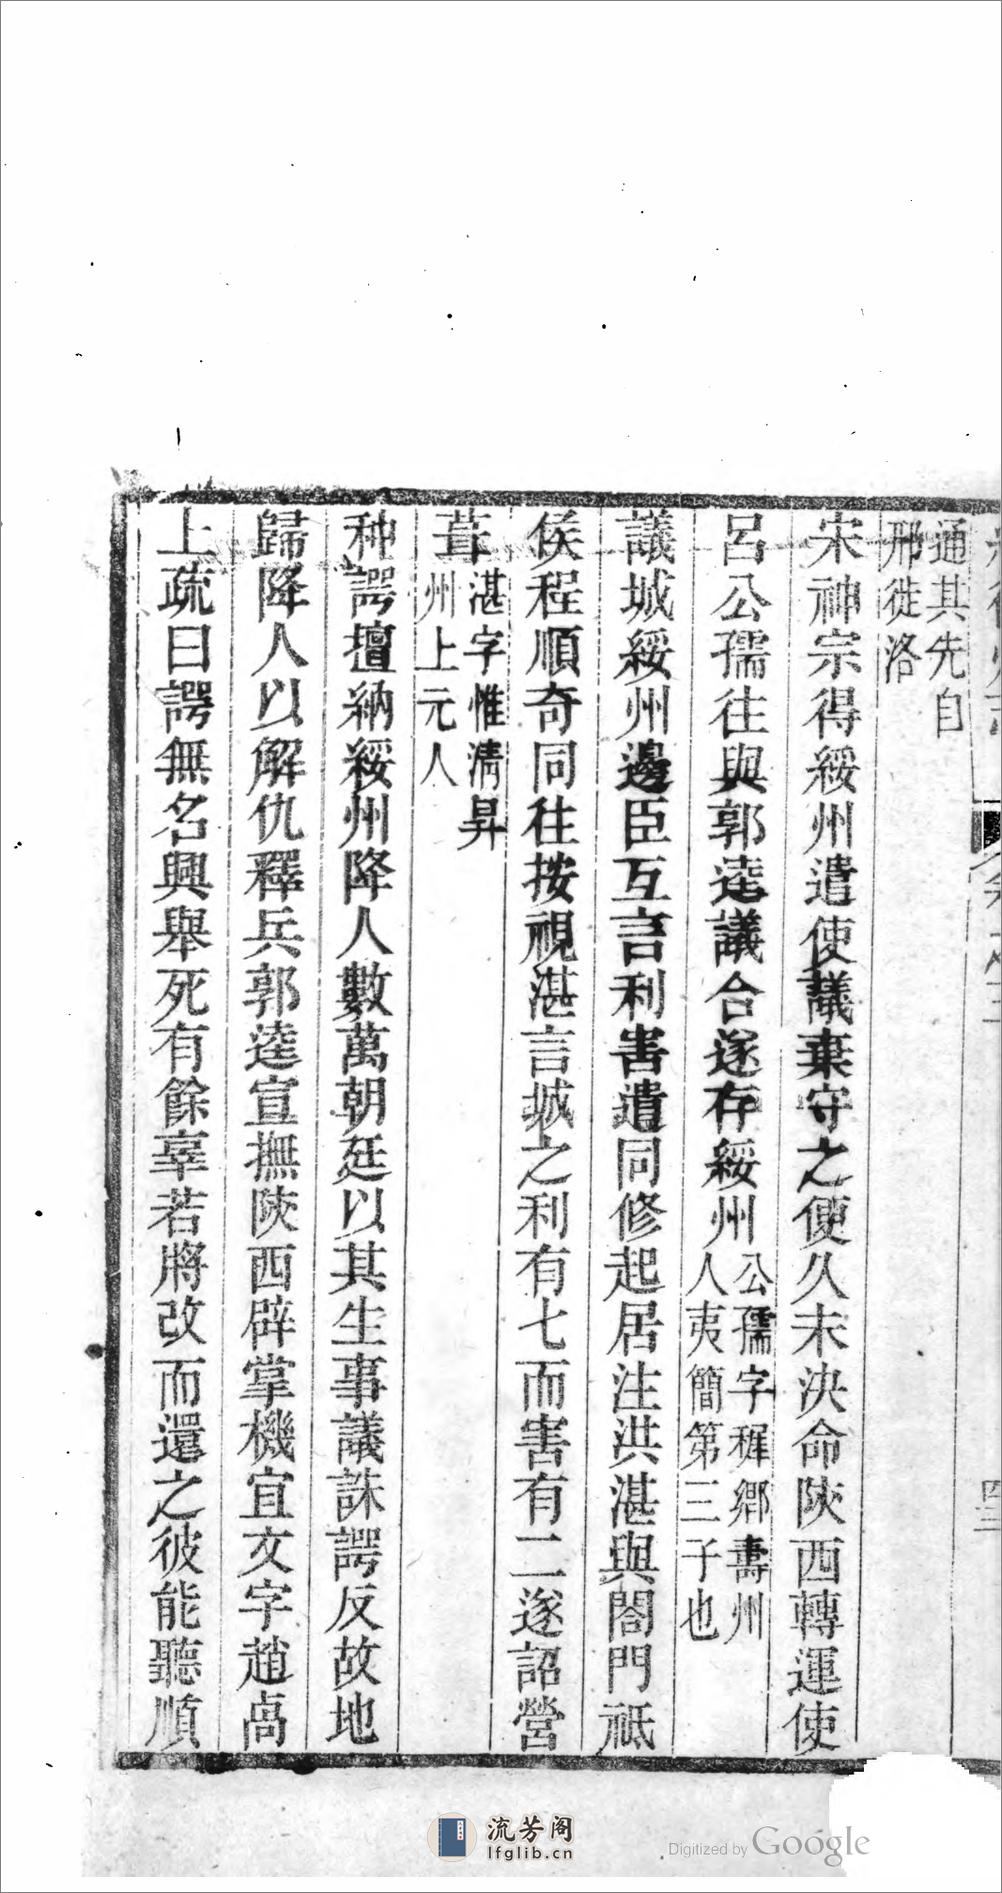 通其先自
邢徙洛
宋神宗得綏州遣使議棄守之便久未決命陝西轉運使
呂公孺往與郭逵議合遂存綏州公孺字稺卿壽州
人夷簡第三子也
議城綏州邊臣互言利害遺同修起居注洪湛與閤門祗
侯程順奇同往按視湛言城之利有七而害有二遂詔營
葺湛字惟清昇
州上元人
种諤壇納綏州降人數萬朝廷以其生事議誅諤反故地
歸降人以解仇釋兵郭逵宣撫陝西辟掌機宜文字趙卨
上疏曰諤無名興舉死有餘辜若將改而還之彼能聽順
四三
流芳阁
lfglib.cn
Digitized by Google